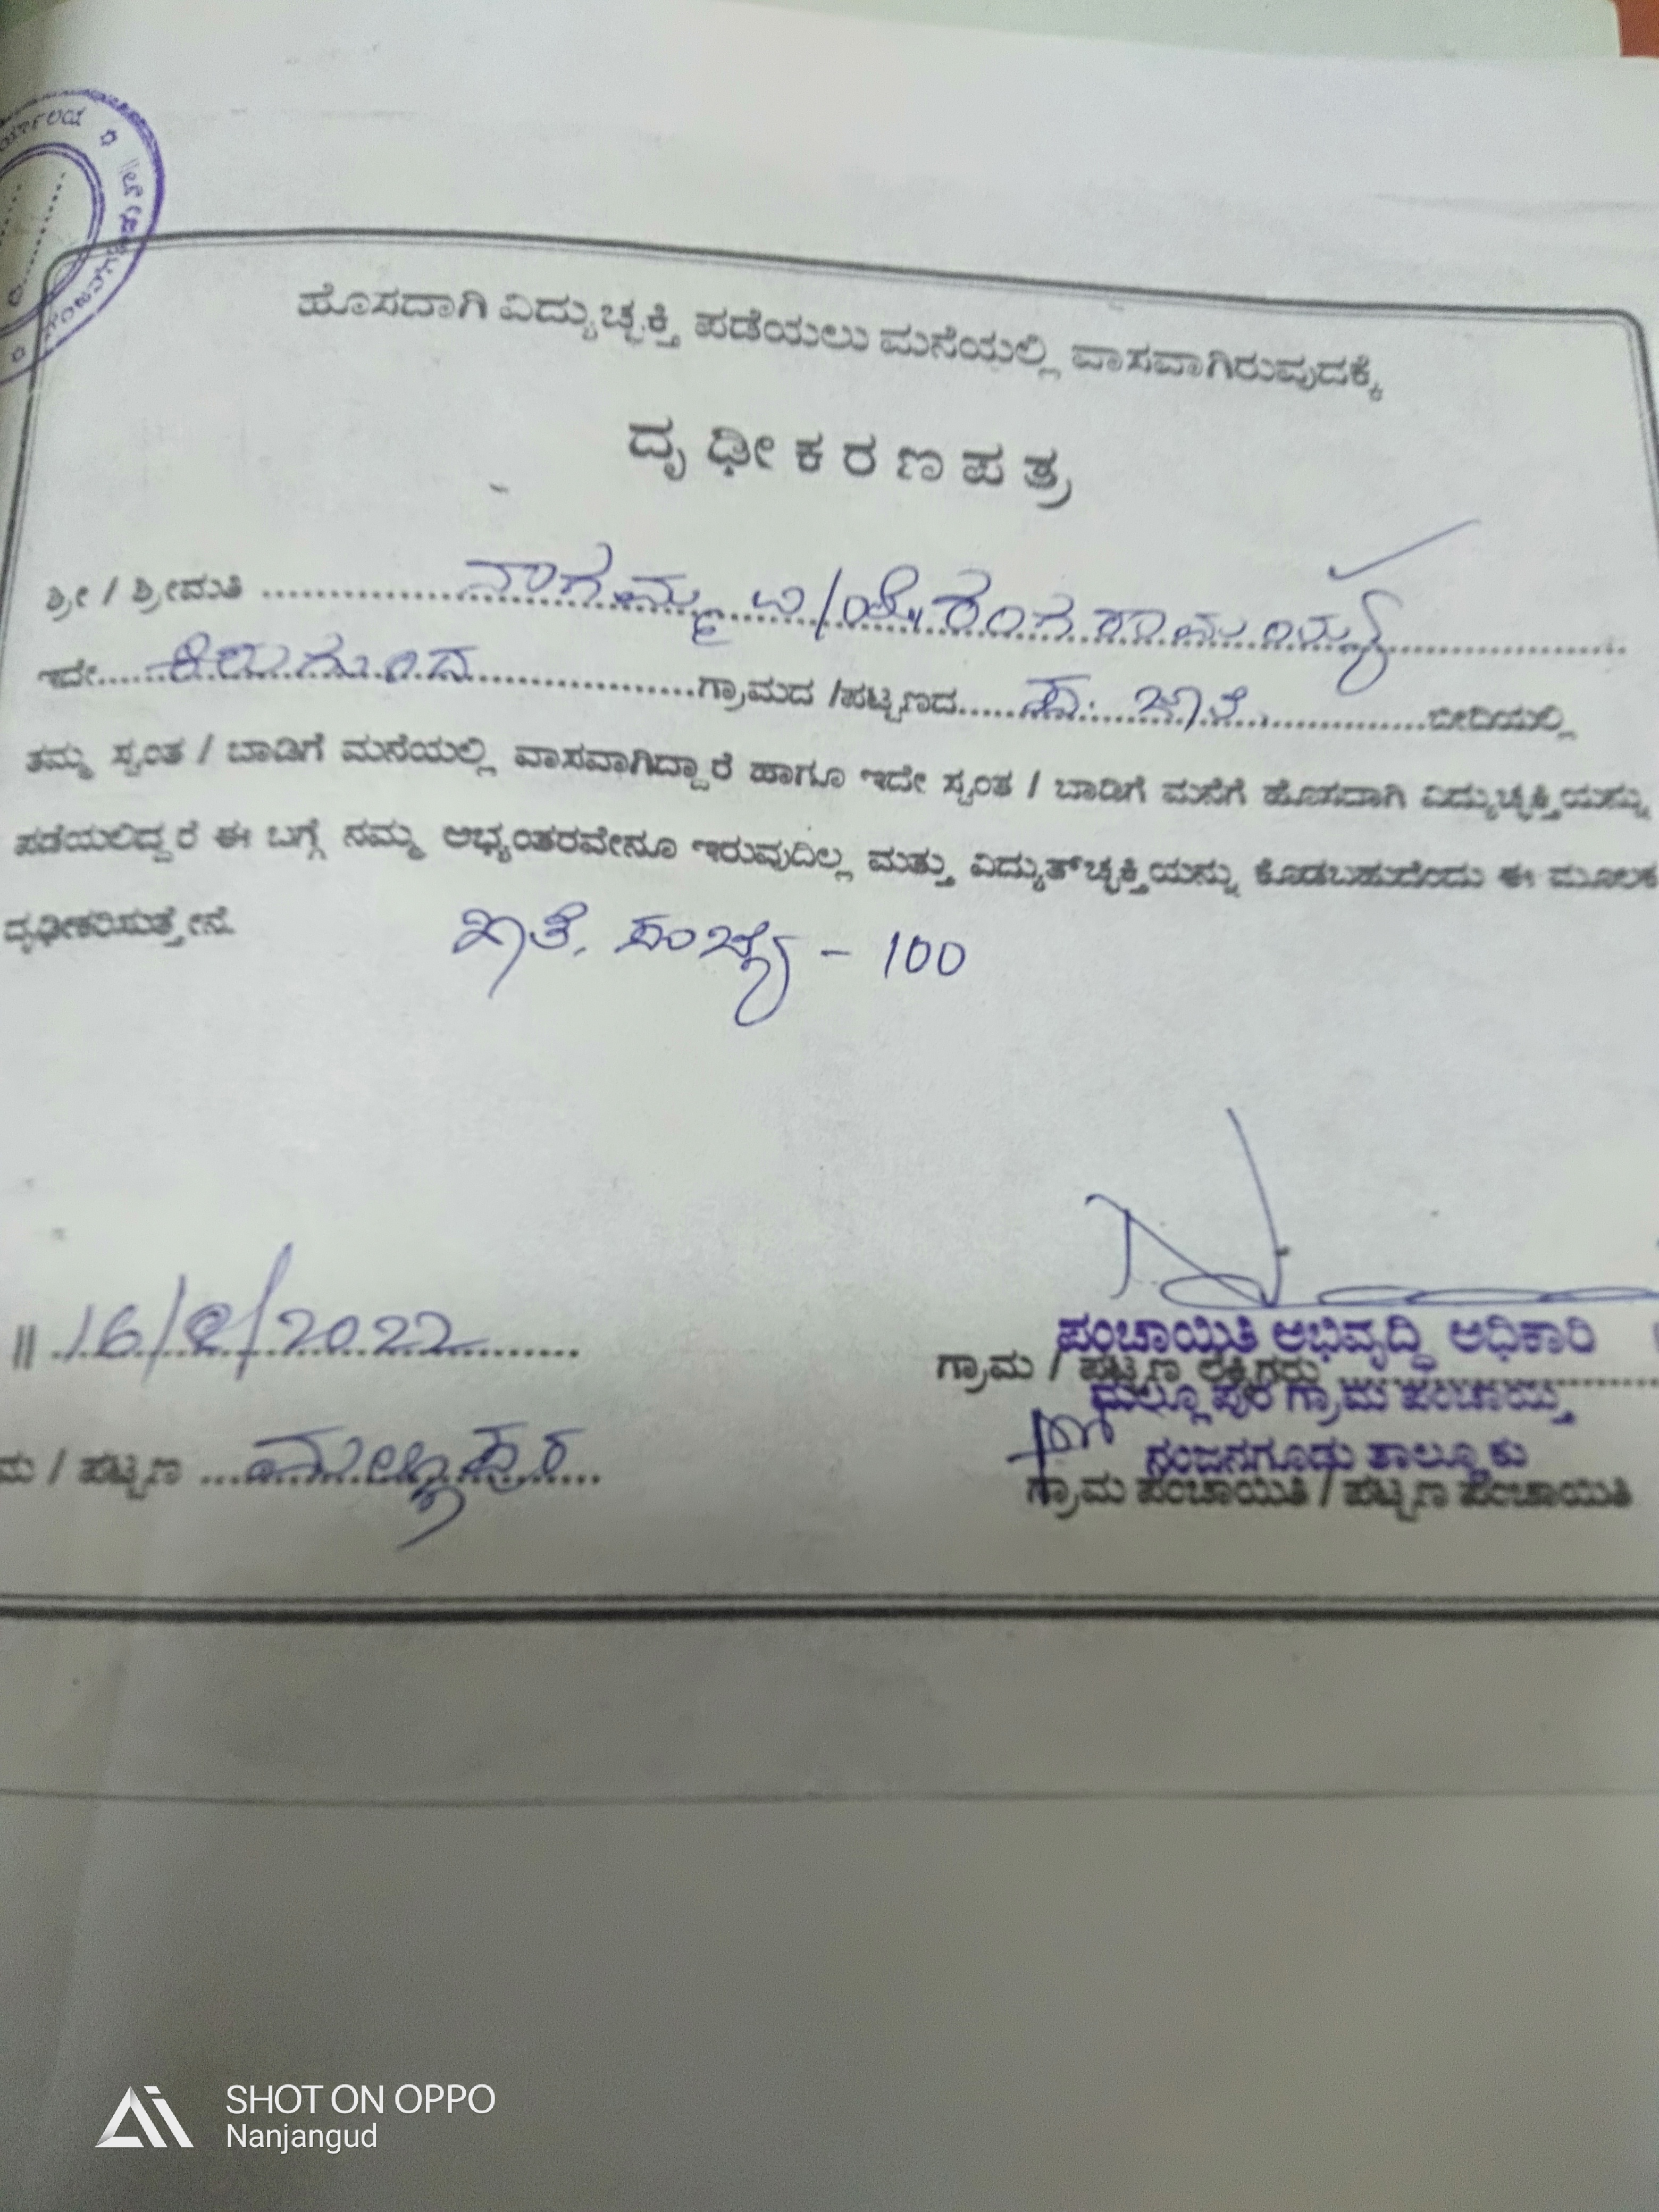 ಹೊಸದಾಗಿ ವಿದ್ಯುಚ್ಛಕ್ತಿ ಪಡೆಯಲು ಮನೆಯಲ್ಲಿ ವಾಸವಾಗಿರುವುದಕ್ಕೆ
ದೃಢೀಕರಣಪತ್ರ
ಶ್ರೀ / ಶ್ರೀಮತಿ ನಾಗಮ್ಮ ರಂಗರಾಮಯ್ಯ
ಇದೇ ಗ್ರಾಮದ /ಪಟ್ಟಣದ ಬೀದಿಯಲ್ಲಿ
ತಮ್ಮ ಸ್ವಂತ / ಬಾಡಿಗೆ ಮನೆಯಲ್ಲಿ ವಾಸವಾಗಿದ್ದಾರೆ ಹಾಗೂ ಇದೇ ಸ್ವಂತ / ಬಾಡಿಗೆ ಮನೆಗೆ ಹೊಸದಾಗಿ ವಿದ್ಯುಚ್ಛಕ್ತಿಯನ್ನು
ಪಡೆಯಲಿದ್ದರೆ ಈ ಬಗ್ಗೆ ನಮ್ಮ ಅಭ್ಯಂತರವೇನೂ ಇರುವುದಿಲ್ಲ ಮತ್ತು ವಿದ್ಯುತ್‌ಚ್ಛಕ್ತಿಯನ್ನು ಕೊಡಬಹುದೆಂದು ಈ ಮೂಲಕ
ದೃಢೀಕರಿಸುತ್ತೇನೆ.
ಖಾತೆ. ಸಂಖ್ಯೆ - 100
|| 16/8/2022
ಪಂಚಾಯಿತಿ ಅಭಿವೃದ್ಧಿ ಅಧಿಕಾರಿ
ಗ್ರಾಮ / ಪಟ್ಟಣ
ಮಲ್ಲೂಪುರ ಗ್ರಾಮ ಪಂಚಾಯ್ತಿ
ನಂಜನಗೂಡು ತಾಲ್ಲೂಕು
/ ಪಟ್ಟಣ ಮಲ್ಲೂಪುರ
ಗ್ರಾಮ ಪಂಚಾಯಿತಿ / ಪಟ್ಟಣ ಪಂಚಾಯಿತಿ
SHOT ON OPPO
Nanjangud